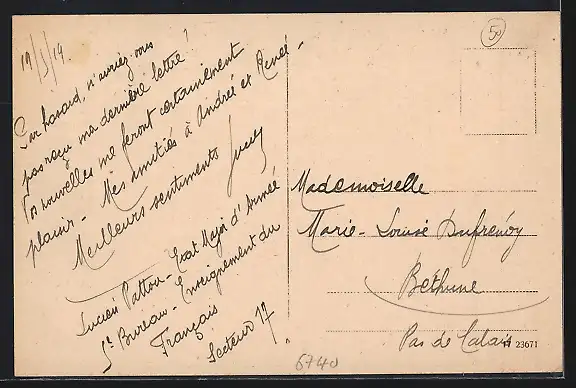 19/5/19
Par hasard, n'auriez vous
pas reçu ma dernière lettre ?
Vos nouvelles me feront certainement
plaisir - Mes amitiés à Andrée et Renée -
Meilleurs sentiments
Lucien
Lucien Patton - Etat Major d'Armée
5e Bureau - Enseignement du
Français
Secteur 17
50
Mademoiselle
Marie-Louise Dufrenoy
Béthune
Pas de Calais
23671
6740